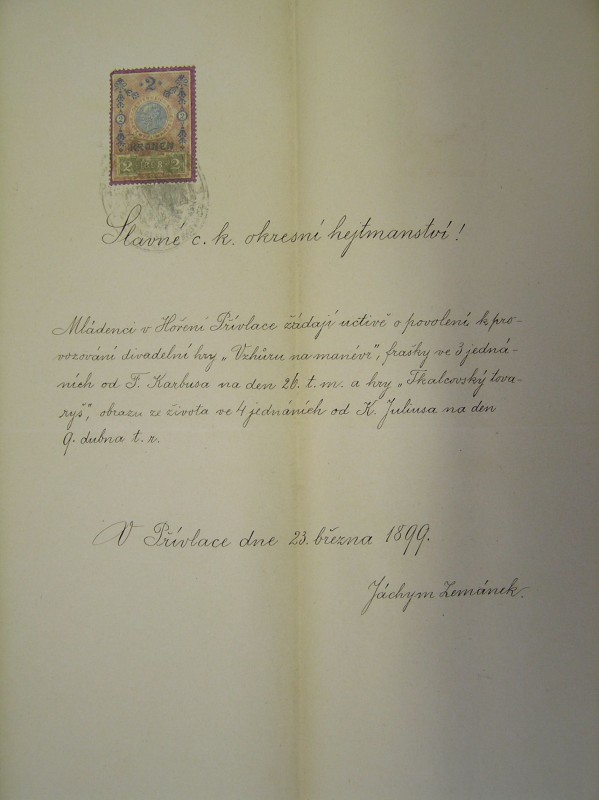 2
2 2
KRONEN
2 KOR. 2
Slavné c. k. okresní hejtmanství!
Mládenci v Hoření Přívlace žádají uctivě o povolení k pro-
vozování divadelní hry „Vzhůru na manévr", frašky ve 3 jedná-
ních od F. Karbusa na den 26. t. m. a hry „Tkalcovský tova-
ryš", obrazu ze života ve 4 jednáních od K. Juliusa na den
9. dubna t. r.
V Přívlace dne 23. března 1899.
Jáchym Zemánek.